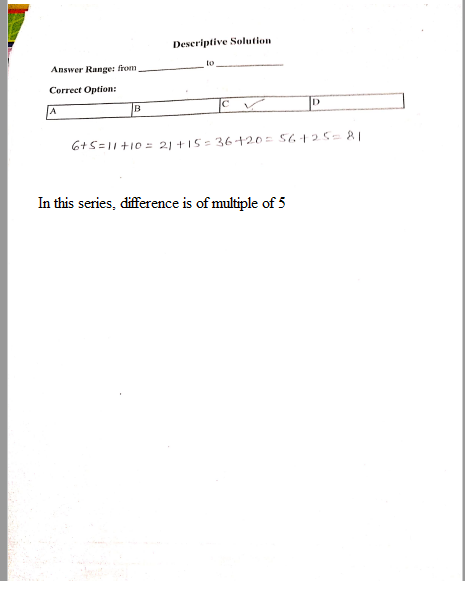 Descriptive Solution
Answer Range: from ____________ to ____________
Correct Option:
A B C ✓ D
6+5=11+10= 21+15=36+20= 56+25=81
In this series, difference is of multiple of 5